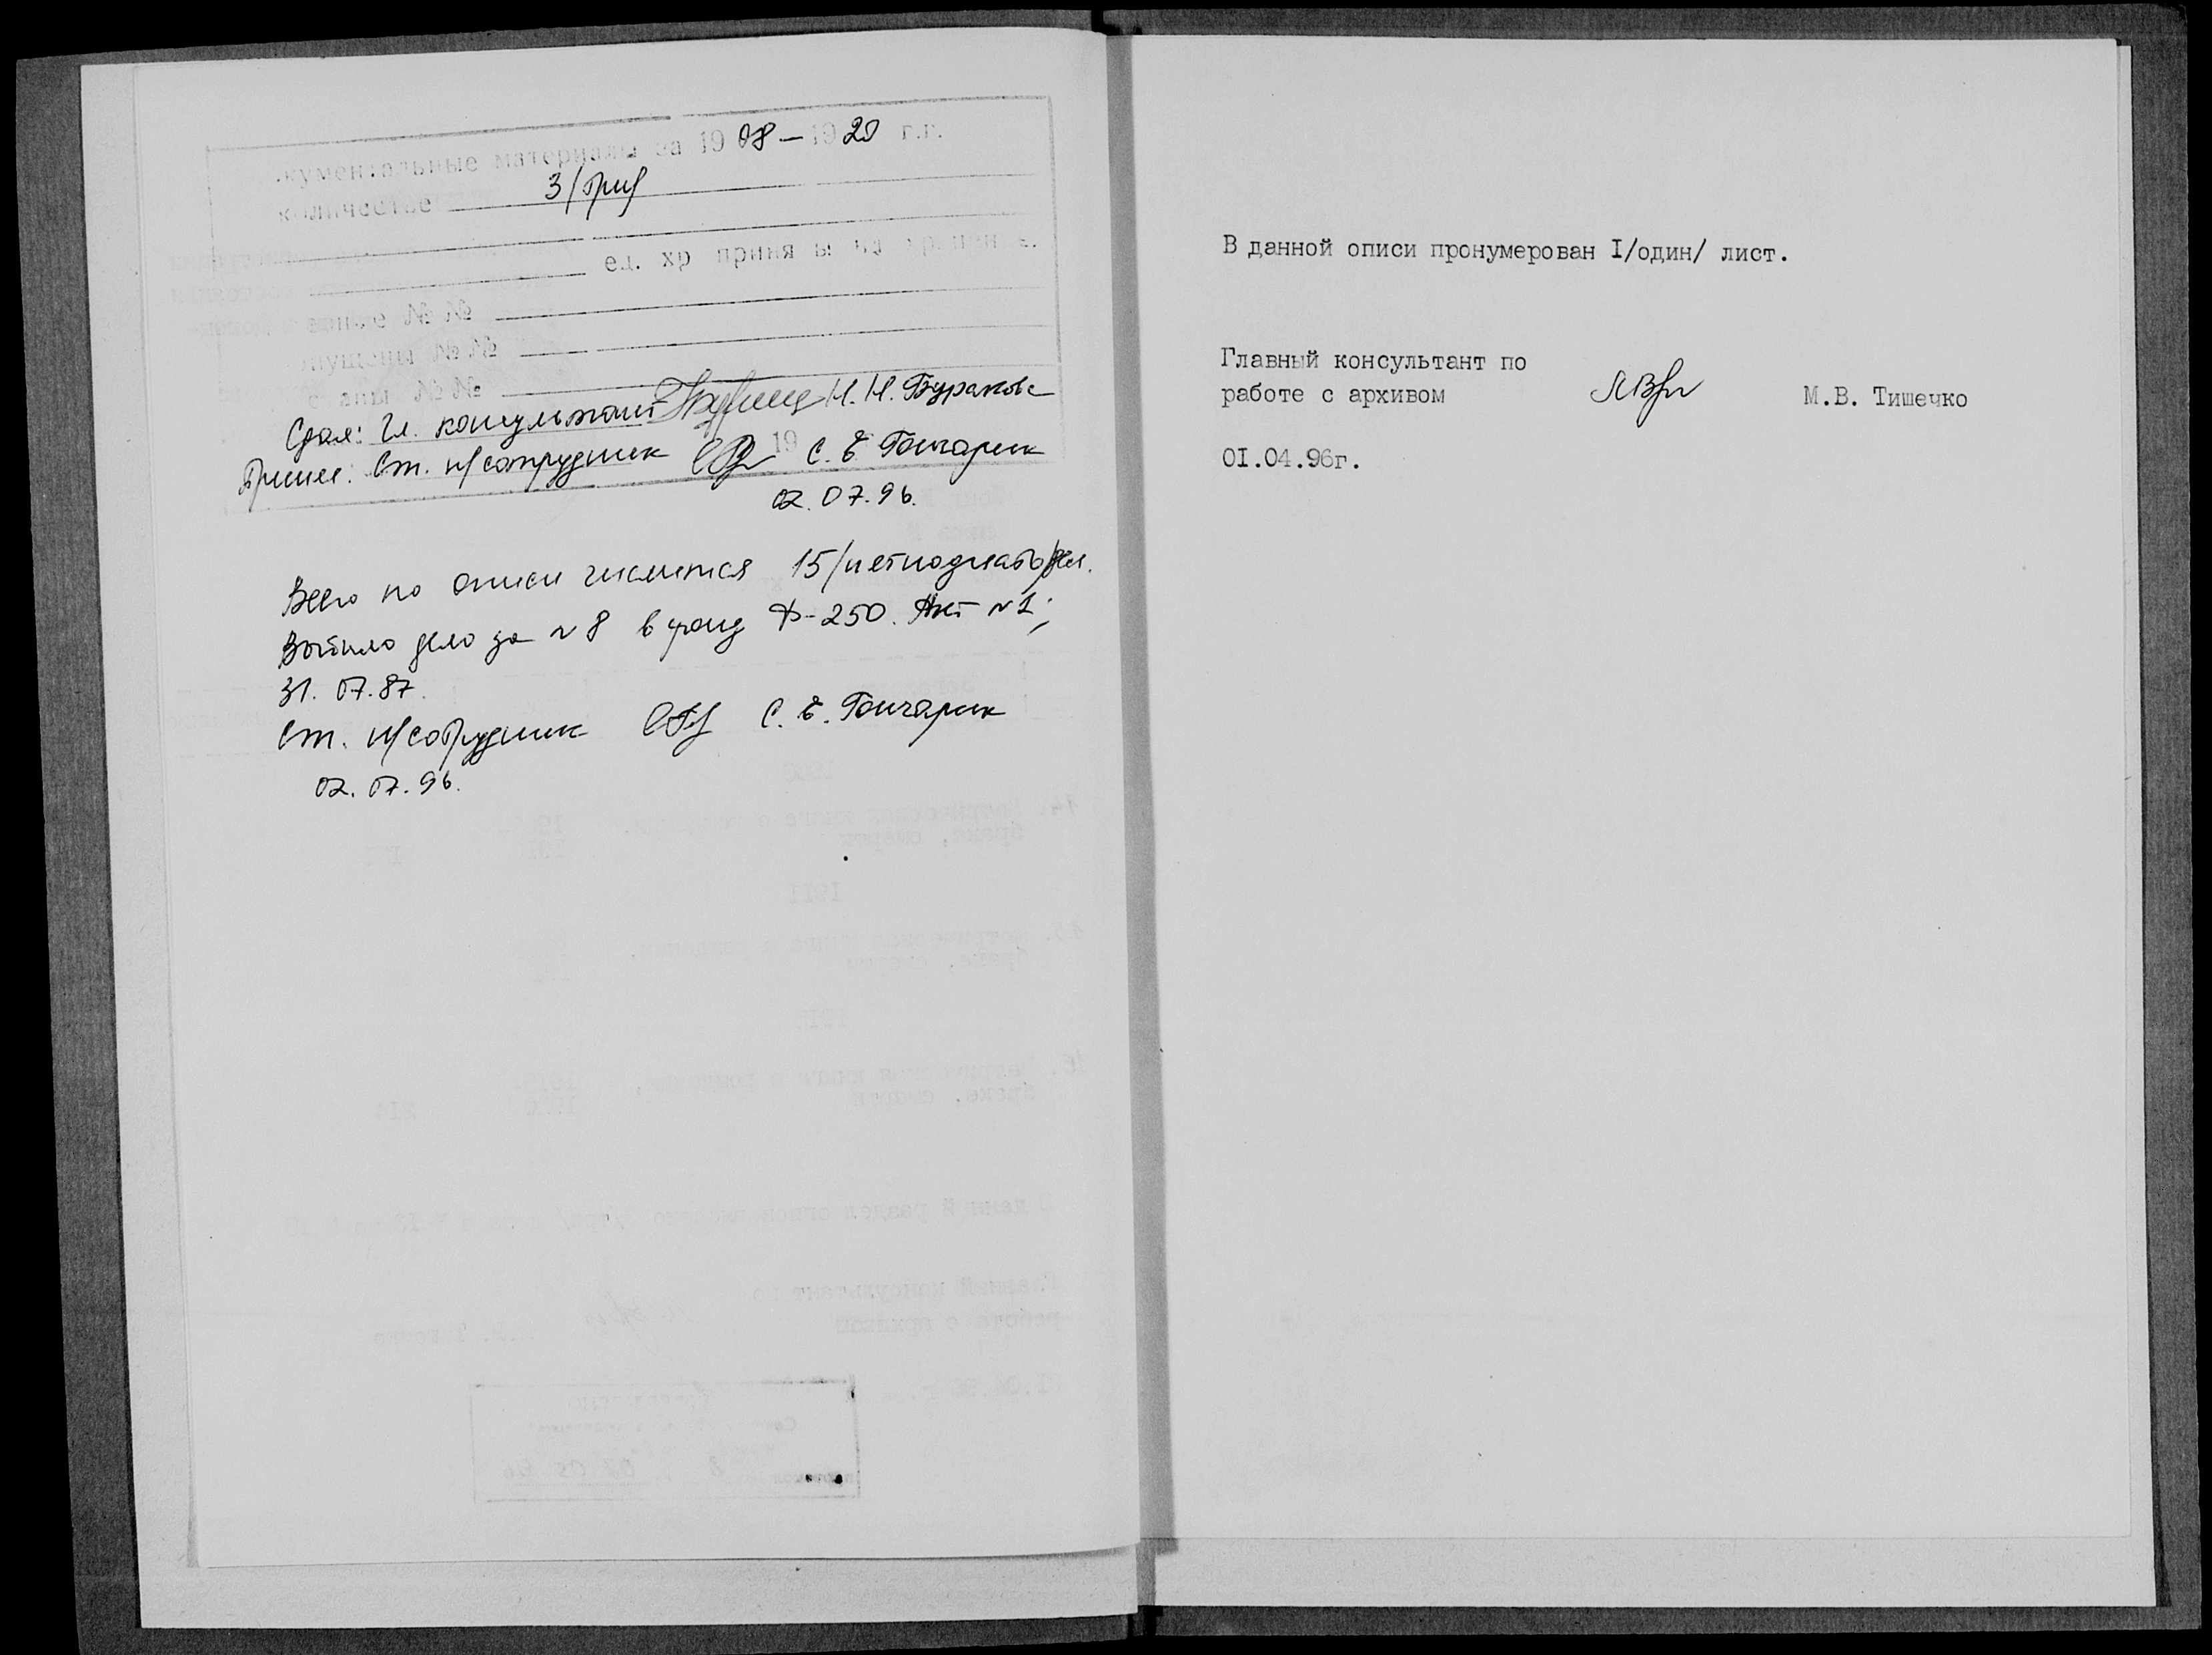 кументальные материалы за 1908 – 1920 г.г.
количестве 3/три/
ед. хр приня ы на хранен е.
№ №
пущены № №
№ №
Сдал: Гл. консультант Н. Н. Буракова
Принял: Ст. н/сотрудник 19 С. Е. Гончарик
02.07.96.
Всего по описи числится 15/пятнадцать/дел.
Выбыло дело за №8 в фонд Ф-250. Акт №1;
31.07.87.
Ст. н/сотрудник С. Е. Гончарик
02.07.96.
В данной описи пронумерован I/один/ лист.
Главный консультант по
работе с архивом М.В. Тишечко
0I.04.96г.